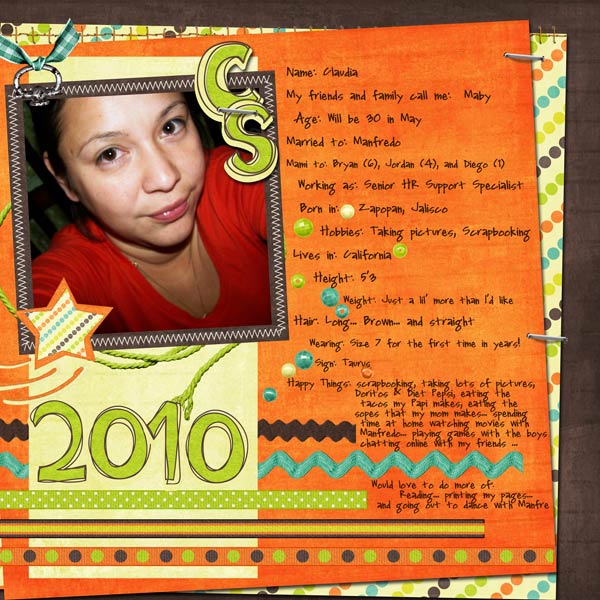 CS
Name: Claudia
My friends and family call me: Maby
Age: Will be 30 in May
Married to: Manfredo
Mami to: Bryan (6), Jordan (4), and Diego (1)
Working as: Senior HR Support Specialist
Born in: Zapopan, Jalisco
Hobbies: Taking pictures, Scrapbooking
Lives in: California
Height: 5'3
Weight: Just a lil' more than I'd like
Hair: Long... Brown... and straight
Wearing: Size 7 for the first time in years!
Sign: Taurus
Happy Things: scrapbooking, taking lots of pictures,
Doritos & Diet Pepsi, eating the
tacos my Papi makes, eating the
sopes that my mom makes... spending
time at home watching movies with
Manfredo... playing games with the boys
chatting online with my friends ...
2010
Would love to do more of:
Reading... printing my pages...
and going out to dance with Manfre